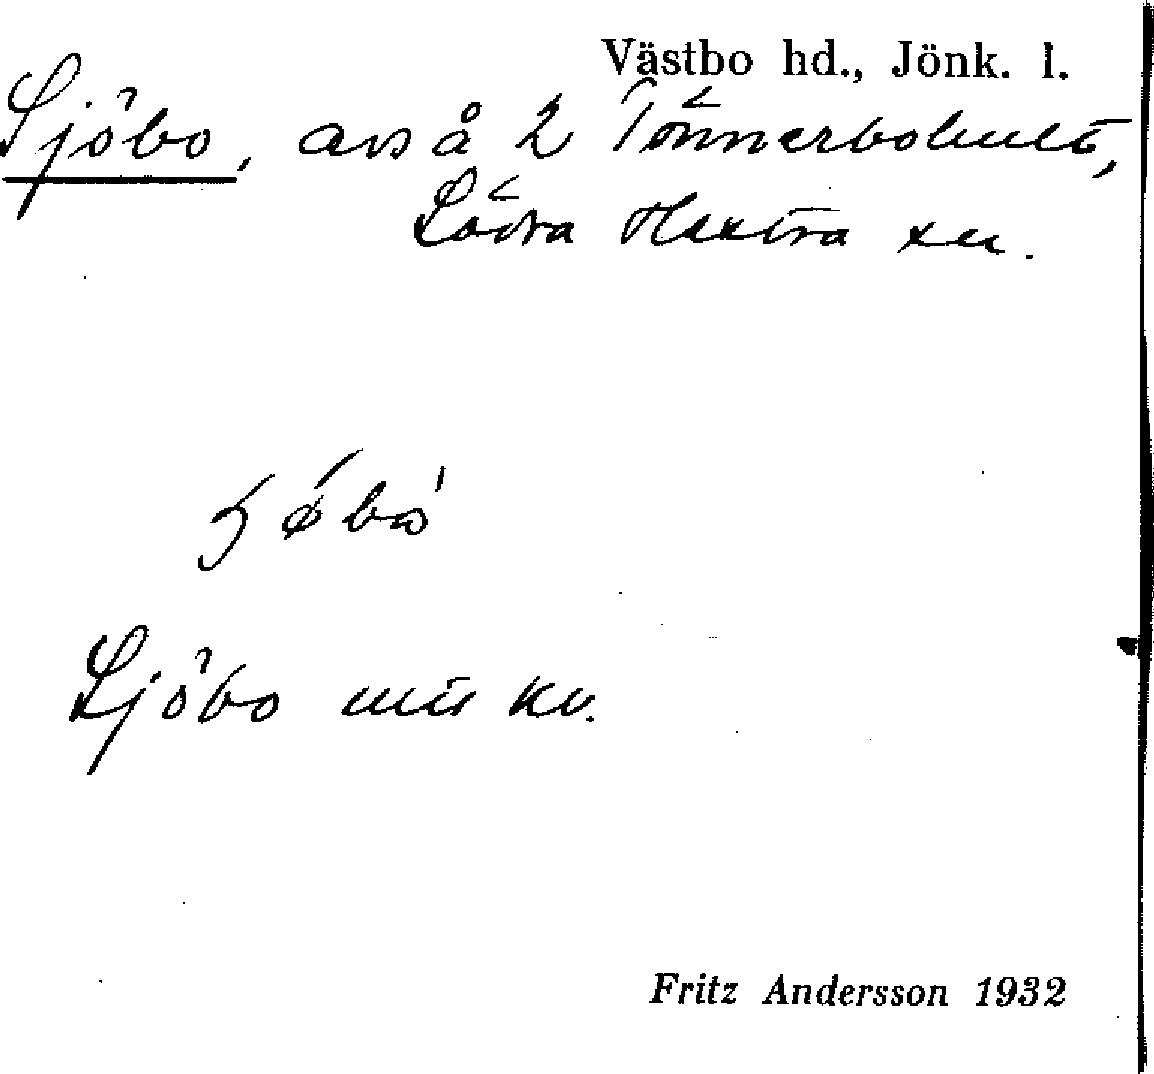 Västbo hd., Jönk. l.
Sjöbo, avs å 2 Tönnerbohult,
Södra Hestra sn.
Sjöbo mtl kv.
Fritz Andersson 1932